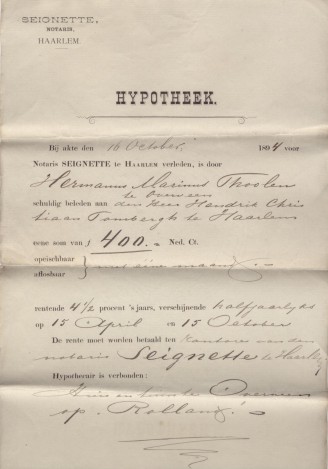 SEIGNETTE,
NOTARIS,
HAARLEM.
HYPOTHEEK.
Bij akte den 16 October 1894 voor
Notaris SEIGNETTE te HAARLEM verleden, is door
Hermanus Marinus Thoolen
te Overveen
schuldig beleden aan den Heer Hendrik Chris
tiaan te Haarlem
eene som van ƒ 400.- Ned. Ct.
opeischbaar
aflosbaar } met één maand.
rentende 4 1/2 procent 's jaars, verschijnende halfjaarlijks
op 15 April en 15 October
De rente moet worden betaald ten kantore van den
notaris Seignette te Haarlem
Hypothecair is verbonden:
Huis en tuin te Overveen
op "Rolland".